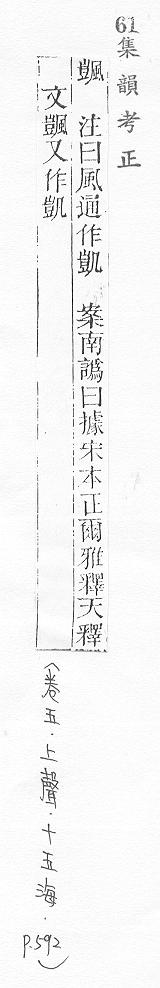 61集韻考正
颽 注曰風通作凱 案南譌曰據宋本正爾雅釋天釋
文颽又作凱
(卷五.上聲.十五海.
p.592)